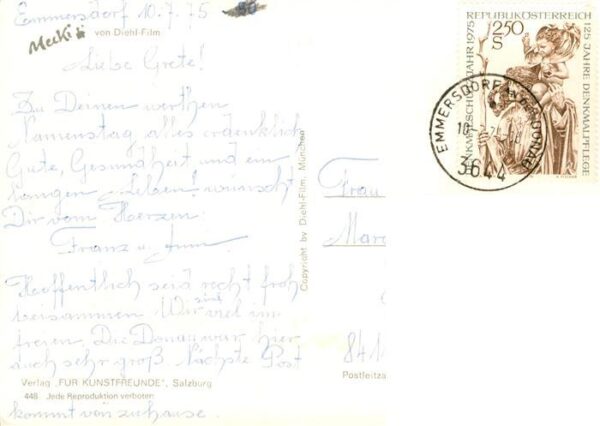 Emmersdorf 10.7.75
Mecki
von Diehl-Film
Liebe Grete!
Zu Deinem werthen
Namenstag alles erdenklich
Gute, Gesundheit und ein
langes Leben! wünscht
Dir vom Herzen
Franz u.
Hoffentlich seid recht froh
beisammen. Wir sind viel im
freien. Die Donau war hier
auch sehr groß. Nächste Post
kommt von zuhause.
Verlag „FÜR KUNSTFREUNDE", Salzburg
448 Jede Reproduktion verboten
Copyright by Diehl-Film, München
Frau
Postleitza
REPUBLIK ÖSTERREICH
2.50
S
125 JAHRE DENKMALPFLEGE
DENKMALSCHUTZJAHR 1975
EMMERSDORF AN DER DONAU
3644